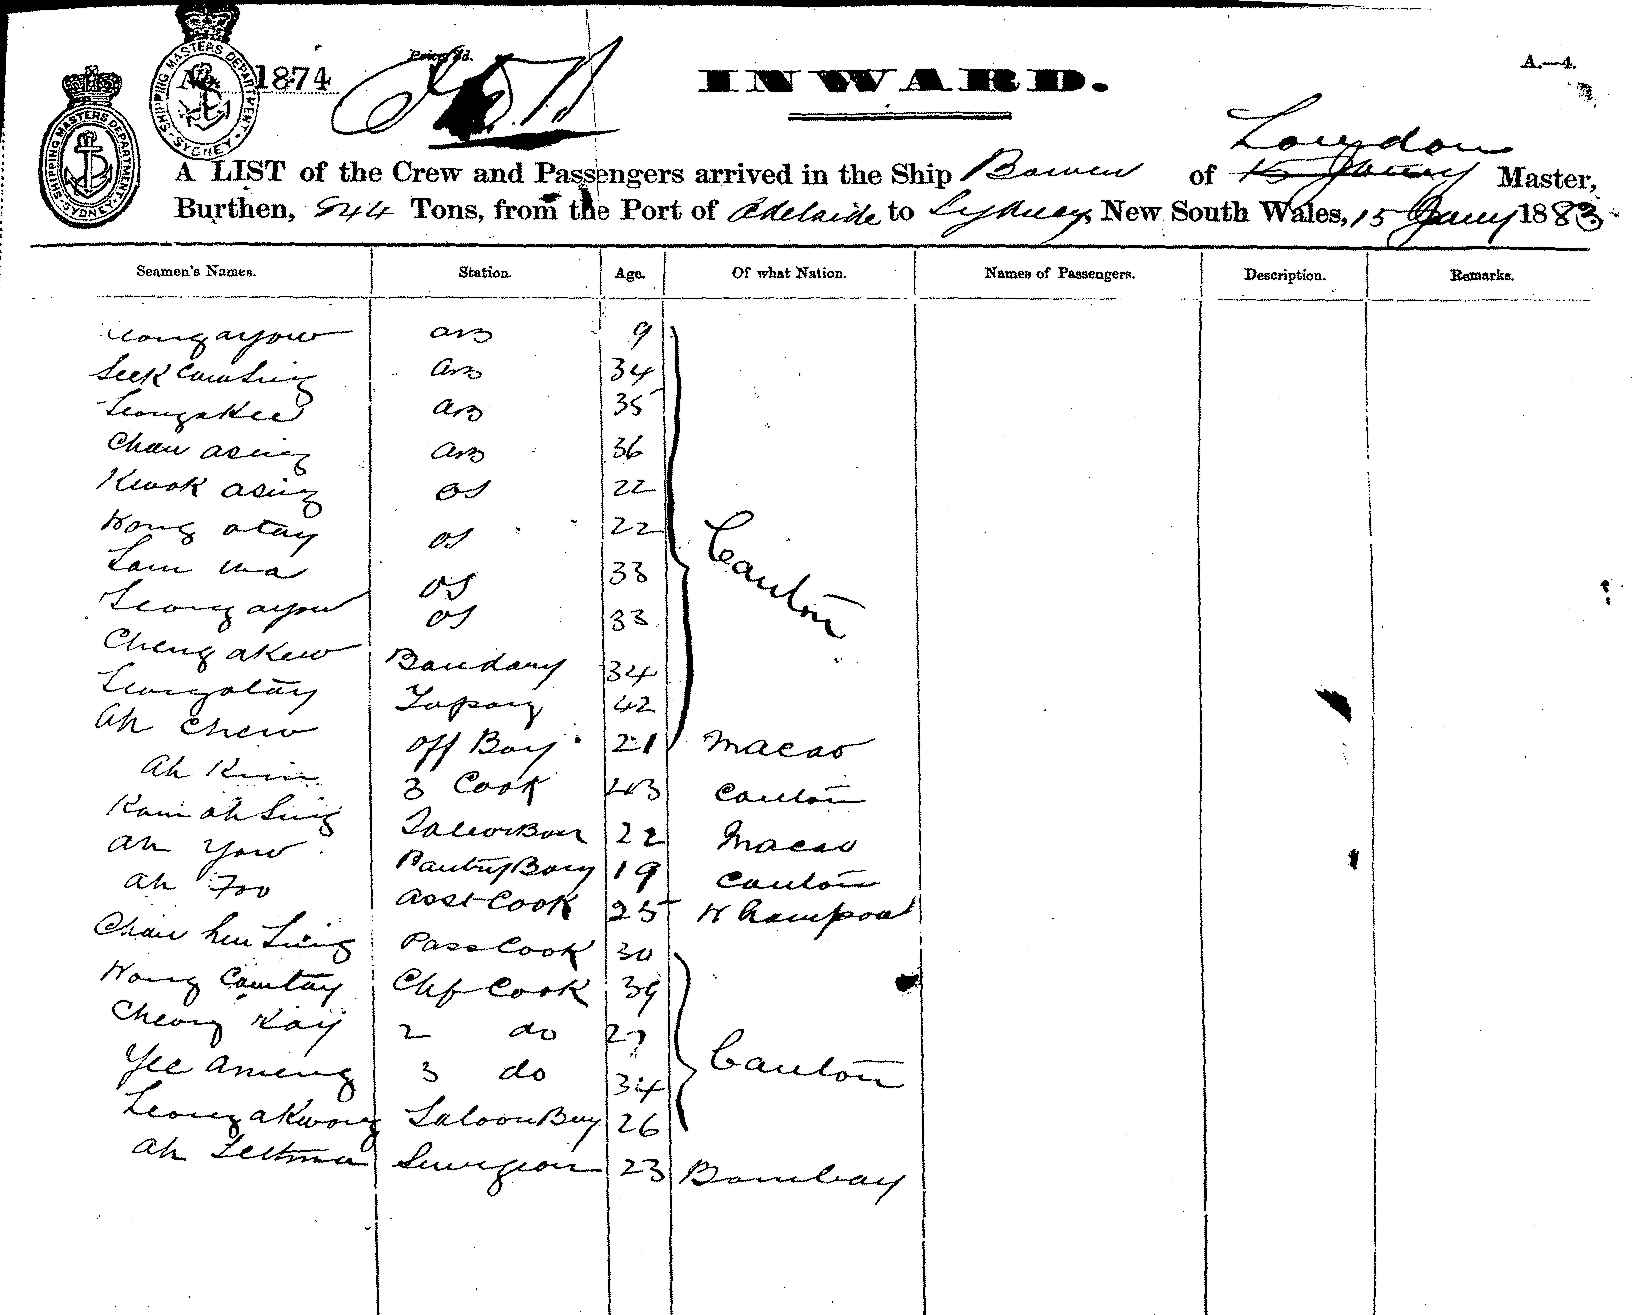 SHIPPING MASTERS DEPARTMENT SYDNEY
SHIPPING MASTERS DEPARTMENT SYDNEY
1874
INWARD.
A.—4.
London
A LIST of the Crew and Passengers arrived in the Ship Bowen of 15 Jany Master,
Burthen, 844 Tons, from the Port of Adelaide to Sydney, New South Wales, 15 Jany 1883
Seamen's Names. Station. Age. Of what Nation. Names of Passengers. Description. Remarks.
Leongayow AB 9
Seek Cawsing AB 34
Leongakee AB 35
Chan asing AB 36
Kwok asing OS 22
Wong atay OS 22
Canton
Lam wa OS 33
Leong ayow OS 33
Cheng akew Bandary 34
Leongatay Topang 42
Ah Chew Off Boy 21 Macao
Ah Kim 3 Cook 43 Canton
Kam ah Sing 22 Macao
Ah Yow Pantry Boy 19 Canton
Ah Foo Asst Cook 25 Whampoa
Chan hen Sing Pass Cook 30
Wong Cawtay Chf Cook 39
Cheong Kay 2 do 27
Canton
Yee Ameng 3 do 34
Leong akwong Saloon Boy 26
Ah Surgeon 23 Bombay